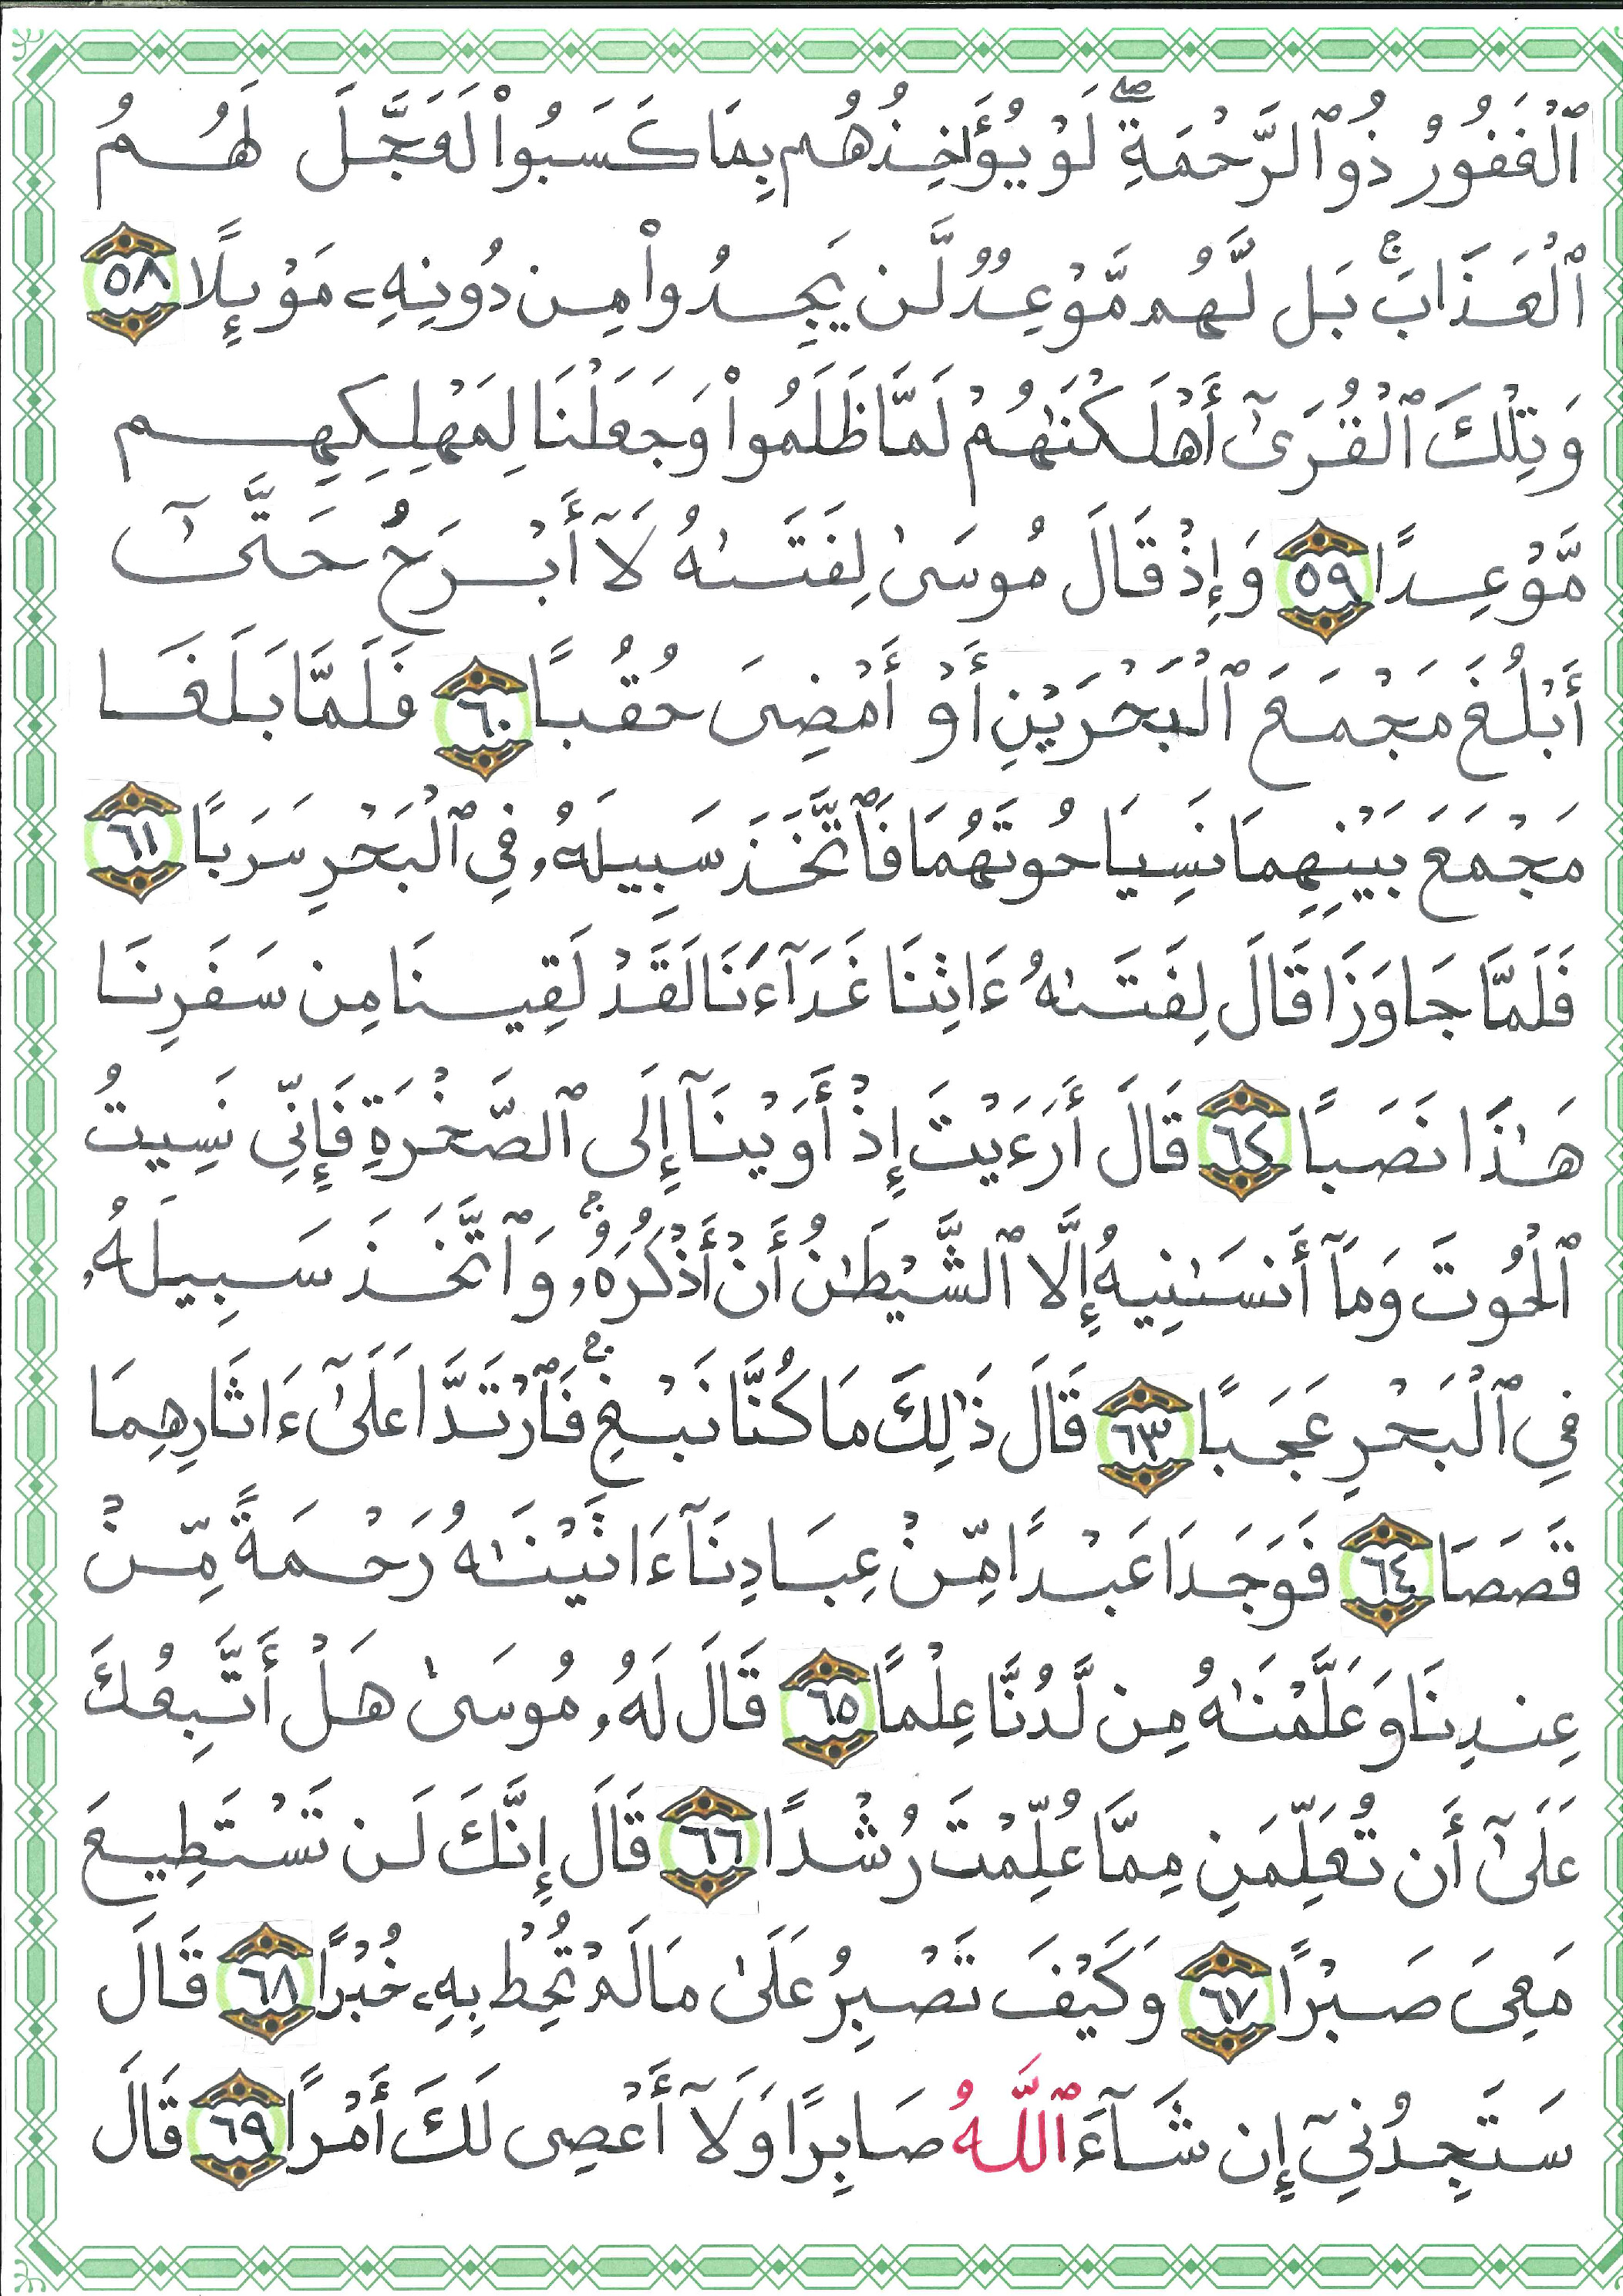 ٱلْغَفُورُ ذُو ٱلرَّحْمَةِۖ لَوْ يُؤَاخِذُهُم بِمَا كَسَبُوا۟ لَعَجَّلَ لَهُمُ
ٱلْعَذَابَۚ بَل لَّهُم مَّوْعِدٌ لَّن يَجِدُوا۟ مِن دُونِهِۦ مَوْئِلًا ٥٨
وَتِلْكَ ٱلْقُرَىٰٓ أَهْلَكْنَٰهُمْ لَمَّا ظَلَمُوا۟ وَجَعَلْنَا لِمَهْلِكِهِم
مَّوْعِدًا ٥٩ وَإِذْ قَالَ مُوسَىٰ لِفَتَىٰهُ لَآ أَبْرَحُ حَتَّىٰٓ
أَبْلُغَ مَجْمَعَ ٱلْبَحْرَيْنِ أَوْ أَمْضِىَ حُقُبًا ٦٠ فَلَمَّا بَلَغَا
مَجْمَعَ بَيْنِهِمَا نَسِيَا حُوتَهُمَا فَٱتَّخَذَ سَبِيلَهُۥ فِى ٱلْبَحْرِ سَرَبًا ٦١
فَلَمَّا جَاوَزَا قَالَ لِفَتَىٰهُ ءَاتِنَا غَدَآءَنَا لَقَدْ لَقِينَا مِن سَفَرِنَا
هَٰذَا نَصَبًا ٦٢ قَالَ أَرَءَيْتَ إِذْ أَوَيْنَآ إِلَى ٱلصَّخْرَةِ فَإِنِّى نَسِيتُ
ٱلْحُوتَ وَمَآ أَنسَىٰنِيهُ إِلَّا ٱلشَّيْطَٰنُ أَنْ أَذْكُرَهُۥۚ وَٱتَّخَذَ سَبِيلَهُۥ
فِى ٱلْبَحْرِ عَجَبًا ٦٣ قَالَ ذَٰلِكَ مَا كُنَّا نَبْغِۚ فَٱرْتَدَّا عَلَىٰٓ ءَاثَارِهِمَا
قَصَصًا ٦٤ فَوَجَدَا عَبْدًا مِّنْ عِبَادِنَآ ءَاتَيْنَٰهُ رَحْمَةً مِّنْ
عِندِنَا وَعَلَّمْنَٰهُ مِن لَّدُنَّا عِلْمًا ٦٥ قَالَ لَهُۥ مُوسَىٰ هَلْ أَتَّبِعُكَ
عَلَىٰٓ أَن تُعَلِّمَنِ مِمَّا عُلِّمْتَ رُشْدًا ٦٦ قَالَ إِنَّكَ لَن تَسْتَطِيعَ
مَعِىَ صَبْرًا ٦٧ وَكَيْفَ تَصْبِرُ عَلَىٰ مَا لَمْ تُحِطْ بِهِۦ خُبْرًا ٦٨ قَالَ
سَتَجِدُنِىٓ إِن شَآءَ ٱللَّهُ صَابِرًا وَلَآ أَعْصِى لَكَ أَمْرًا ٦٩ قَالَ